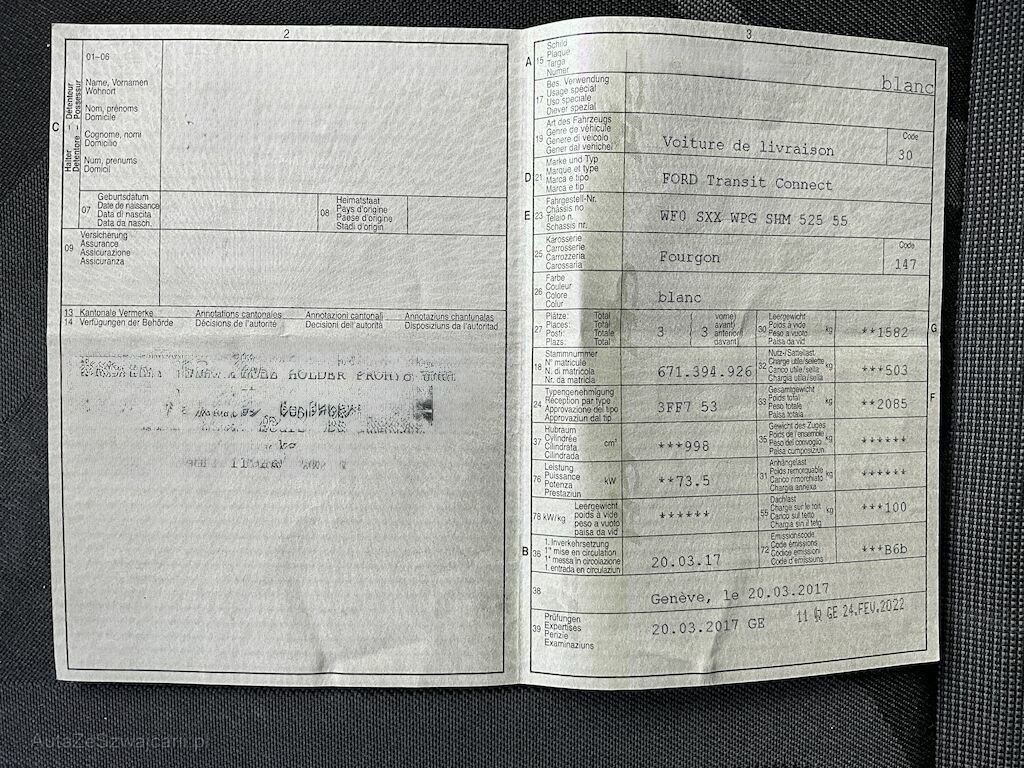 2
01–06
Name, Vornamen
Wohnort
Nom, prénoms
Domicile
Cognome, nomi
Domicilio
Num, prenums
Domicil
C
Halter – Détenteur
Detentore – Possessur
07
Geburtsdatum
Date de naissance
Data di nascita
Data da nasch.
08
Heimatstaat
Pays d'origine
Paese d'origine
Stadi d'origin
09
Versicherung
Assurance
Assicurazione
Assicuranza
13 Kantonale Vermerke Annotations cantonales Annotazioni cantonali Annotaziuns chantunalas
14 Verfügungen der Behörde Décisions de l'autorité Decisioni dell'autorità Disposiziuns da l'autoritad
HOLDER
3
A 15
Schild
Plaque
Targa
Numer
blanc
17
Bes. Verwendung
Usage spécial
Uso speciale
Diever spezial
19
Art des Fahrzeugs
Genre de véhicule
Genere di veicolo
Gener dal vehichel
Voiture de livraison
Code
30
D 21
Marke und Typ
Marque et type
Marca e tipo
Marca e tip
FORD Transit Connect
E 23
Fahrgestell-Nr.
Châssis no
Telaio n.
Schassis nr.
WF0 SXX WPG SHM 525 55
25
Karosserie
Carrosserie
Carrozzeria
Carossaria
Fourgon
Code
147
26
Farbe
Couleur
Colore
Colur
blanc
27
Plätze: Total
Places: Total
Posti: Totale
Plazs: Total
3 ( 3
vorne)
avant)
anteriori)
davant)
30
Leergewicht
Poids à vide
Peso a vuoto
Paisa da vid
kg
**1582
G
18
Stammnummer
N° matricule
N. di matricola
Nr. da matricla
671.394.926
32
Nutz-/Sattellast
Charge utile/sellette
Carico utile/sella
Chargia utila/sella
kg
***503
24
Typengenehmigung
Réception par type
Approvazione del tipo
Approvaziun dal tip
3FF7 53
33
Gesamtgewicht
Poids total
Peso totale
Paisa totala
kg
**2085
F
37
Hubraum
Cylindrée
Cilindrata
Cilindrada
cm³
***998
35
Gewicht des Zuges
Poids de l'ensemble
Peso del convoglio
Paisa cumposiziun
kg
******
76
Leistung
Puissance
Potenza
Prestaziun
kW
**73.5
31
Anhängelast
Poids remorquable
Carico rimorchiato
Chargia annexa
kg
******
78 kW/kg
Leergewicht
poids à vide
peso a vuoto
paisa da vid
******
55
Dachlast
Charge sur le toit
Carico sul tetto
Chargia sin il tetg
kg
***100
B 36
1. Inverkehrsetzung
1re mise en circulation
1a messa in circolazione
1. entrada en circulaziun
20.03.17
72
Emissionscode
Code émissions
Codice emissioni
Code d'emissiuns
***B6b
38
Genève, le 20.03.2017
39
Prüfungen
Expertises
Perizie
Examinaziuns
20.03.2017 GE
GE 24.FEV.2022
AutaZeSzwajcarii.pl